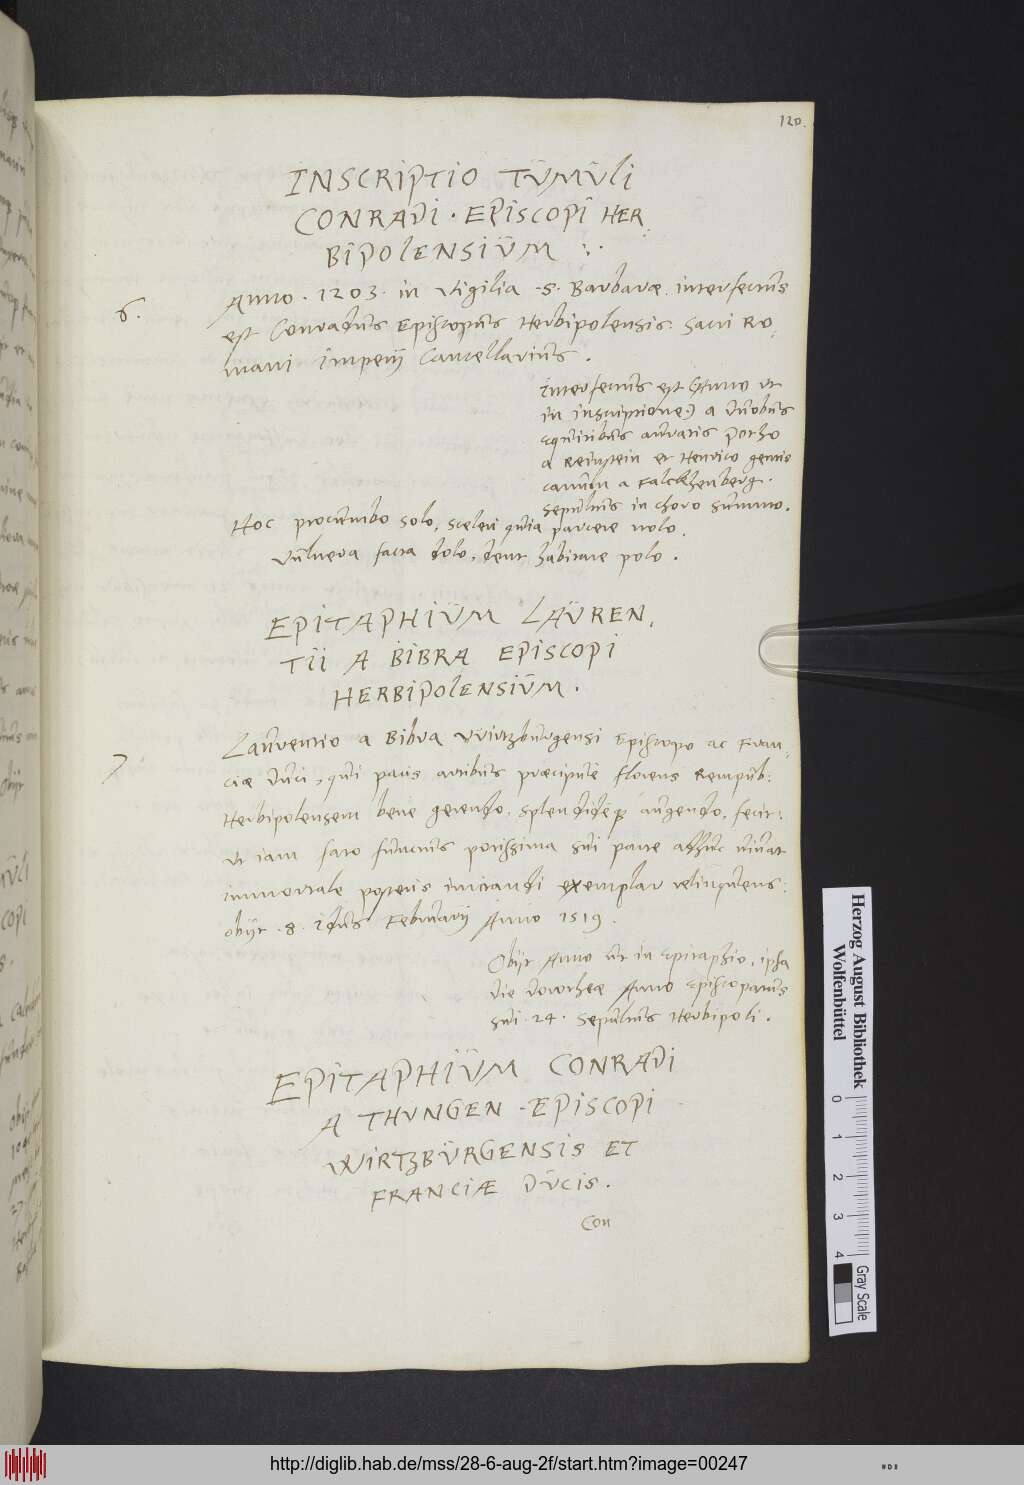 120.
INSCRIPTIO TŪMŪLI
CONRADI · EPISCOPI HER
BIPOLENSIŪM
6.
Anno · 1203 · in vigilia · S · Barbaræ interfectus
est Conradus Episcopus Herbipolensis sacri Ro,
mani imperij Cancellarius .
interfectus est (Anno ut
in inscriptione) a duobus
equitibus auratis Potho
a Reinstein et Henrico
a Falckhenberg.
sepultus in choro summo.
Hoc procumbo solo, sceleri quia parcere nolo,
Vulnera facta dolo, dent habitare polo .
EPITAPHIŪM LAŪREN,
TII A BIBRA EPISCOPI
HERBIPOLENSIŪM .
7
Laurentio a Bibra Wirtzburgensi Episcopo ac Fran,
ciæ duci, qui pacis artibus præcipuè florens Rempub:
Herbipolensem bene gerendo, splendideq augendo, fecit:
ut iam fato functus potissima sui parte adhuc vivat
immortale posteris imitandi exemplar relinquens:
obijt · 8 · idus Februarij Anno 1519 .
Obijt Anno ut in epitaphio, ipsa
die dorotheæ Anno episcopatus
sui · 24 · sepultus Herbipoli .
EPITAPHIŪM CONRADI
A THUNGEN · EPISCOPI
WIRTZBŪRGENSIS ET
FRANCIÆ DŪCIS .
Con
Herzog August Bibliothek
Wolfenbüttel
0 1 2 3 4
Gray Scale
http://diglib.hab.de/mss/28-6-aug-2f/start.htm?image=00247